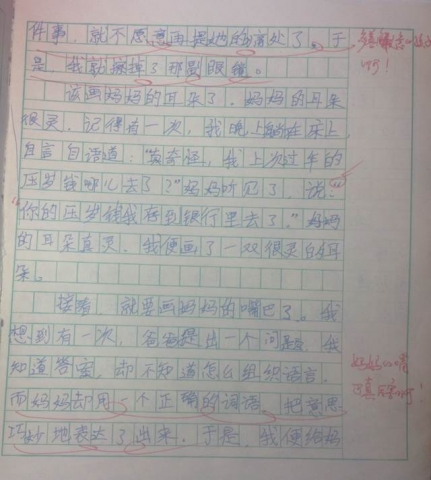 件事，就不愿意再提她的痛处了。于
是，我就擦掉了那副眼镜。
该画妈妈的耳朵了。妈妈的耳朵
很灵。记得有一次，我晚上躺在床上
自言自语道：“莫奇怪，我上次过年的
压岁钱哪儿去了？”妈妈听见了，说：
“你的压岁钱我存到银行里去了。”妈妈
的耳朵真灵。我便画了一双很灵的耳
朵。
接着，就要画妈妈的嘴巴了。我
想到有一次，爸爸提出一个问题，我
知道答案，却不知道怎么组织语言，
而妈妈却用一个正确的词语，把意思
巧妙地表达了出来。于是，我便给妈